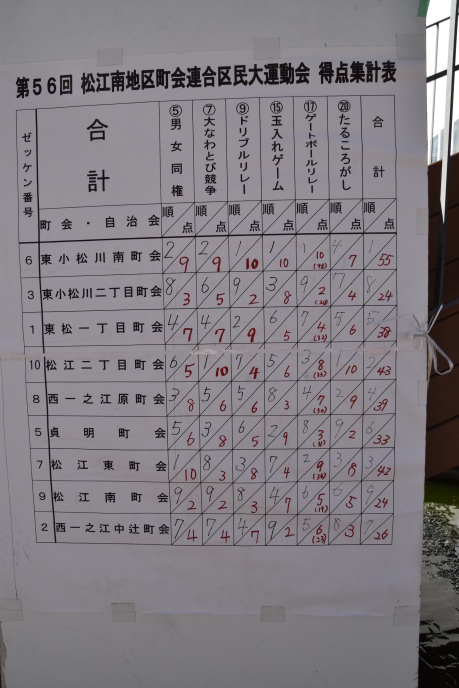 第56回 松江南地区町会連合区民大運動会 得点集計表
ゼッケン番号 合計 ⑤男女同権 ⑦大なわとび競争 ⑨ドリブルリレー ⑮玉入れゲーム ⑰ゲートボールリレー ⑳たるころがし 合計
町会・自治会 順 点 順 点 順 点 順 点 順 点 順 点 順 点
6 東小松川南町会 2 9 2 9 1 10 1 10 1 10 4 7 1 55
3 東小松川二丁目町会 8 3 6 5 9 2 3 8 9 2 7 4 8 24
1 東松一丁目町会 4 7 4 7 2 9 6 5 7 4 5 6 5 38
10 松江二丁目町会 6 5 1 10 7 4 5 6 3 8 1 10 43
8 西一之江原町会 3 8 5 6 5 6 8 3 4 7 (30) 2 9 4 39
5 貞明町会 5 6 3 8 6 5 2 9 8 3 9 2 6 33
7 松江東町会 1 10 8 3 3 8 7 4 2 9 3 8 3 42
9 松江南町会 9 2 9 2 8 3 4 7 6 5 (19) 6 5 9 24
2 西一之江中辻町会 7 4 7 4 4 7 9 2 5 6 (23) 8 3 7 26